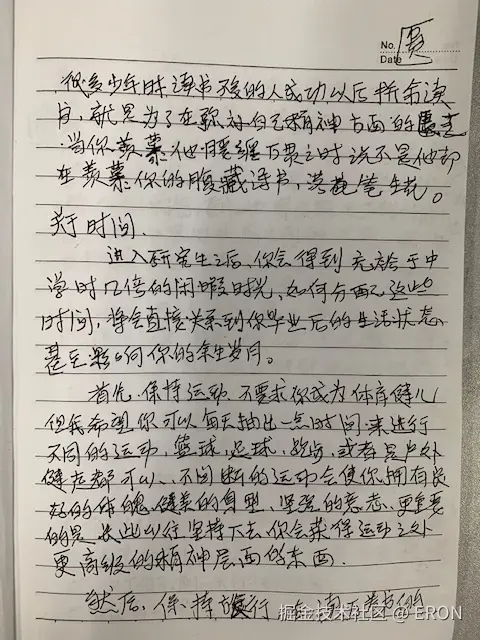 No.
Date
很多少年时读书不多的人成功以后拼命读
书,就是为了在弥补自己精神方面的
当你羡慕他腰缠万贯之时说不定他却
在羡慕你的腹藏诗书,满卷笔锐。
关于时间.
进入研究生之后,你会得到充裕于中
学时几倍的闲暇时光,如何分配这些
时间,将会直接关系到你毕业后的生活状态
甚至影响你的余生岁月。
首先,保持运动,不要求你成为体育健儿
但我希望你可以每天抽出一点时间来进行
不同的运动,篮球,足球,跑步,或者是户外
健走都可以、不间断的运动会使你拥有良
好的体魄健美的身型、坚强的意志、更重要
的是从此以往坚持下去你会获得运动之外
更高级的精神层面的东西.
然后,保持旅行
掘金技术社区 @ ERON